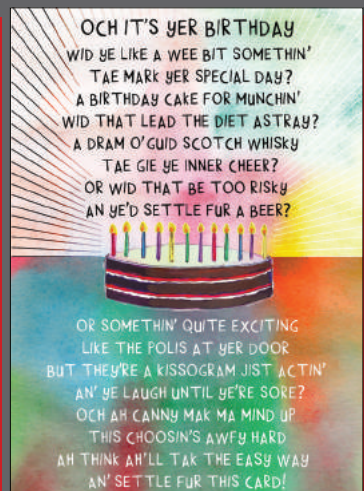 OCH IT'S YER BIRTHDAY
WID YE LIKE A WEE BIT SOMETHIN'
TAE MARK YER SPECIAL DAY?
A BIRTHDAY CAKE FOR MUNCHIN'
WID THAT LEAD THE DIET ASTRAY?
A DRAM O'GUID SCOTCH WHISKY
TAE GIE YE INNER CHEER?
OR WID THAT BE TOO RISKY
AN YE'D SETTLE FUR A BEER?
OR SOMETHIN' QUITE EXCITING
LIKE THE POLIS AT YER DOOR
BUT THEY'RE A KISSOGRAM JIST ACTIN'
AN' YE LAUGH UNTIL YE'RE SORE?
OCH AH CANNY MAK MA MIND UP
THIS CHOOSIN'S AWFY HARD
AH THINK AH'LL TAK THE EASY WAY
AN' SETTLE FUR THIS CARD!